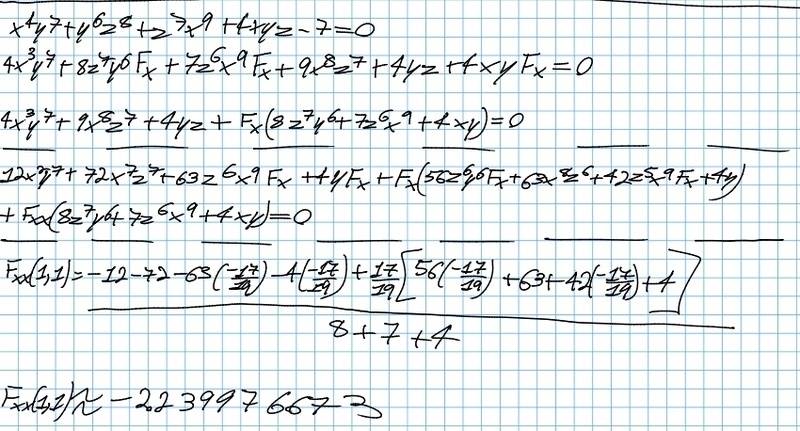 x⁴y⁷+y⁶z⁸+z⁷x⁹+4xyz-7=0
4x³y⁷+8z⁷y⁶Fx+7z⁶x⁹Fx+9x⁸z⁷+4yz+4xyFx=0
4x³y⁷+9x⁸z⁷+4yz+Fx(8z⁷y⁶+7z⁶x⁹+4xy)=0
12x²y⁷+72x⁷z⁷+63z⁶x⁹Fx+4yFx+Fx(56z⁶y⁶Fx+63x⁸z⁶+42z⁵x⁹Fx+4y)
+Fxx(8z⁷y⁶+7z⁶x⁹+4xy)=0
Fxx(1,1)=-12-72-63(-17/19)-4(-17/19)+17/19[56(-17/19)+63+42(-17/19)+4]
8+7+4
Fxx(1,1)≈-2.239976673